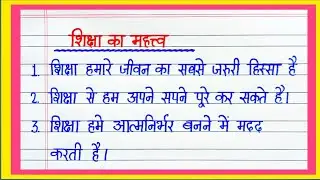 शिक्षा का महत्त्व
1. शिक्षा हमारे जीवन का सबसे जरुरी हिस्सा है
2. शिक्षा से हम अपने सपने पूरे कर सकते है।
3. शिक्षा हमे आत्मनिर्भर बनने में मदद
करती है।